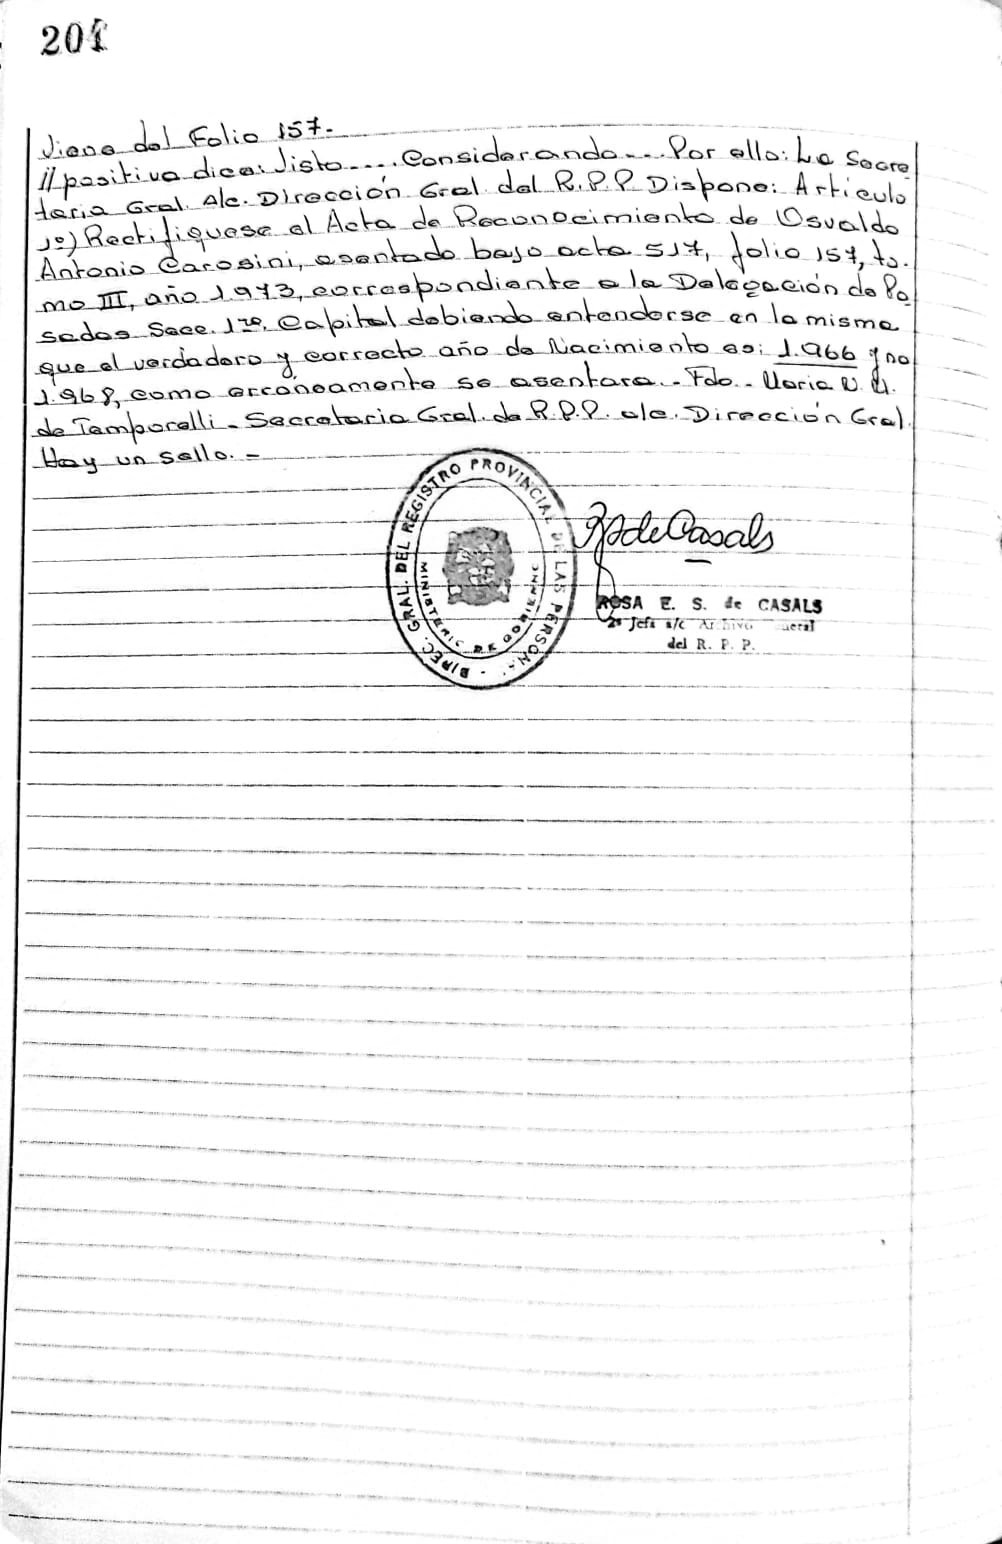 201
Viene del Folio 157.-
//positiva dice: Visto.... Considerando.... Por ello: La Secre
taria Gral. A/c. Dirección Gral. del R.P.P. Dispone: Artículo
1º) Rectifíquese el Acta de Reconocimiento de Osvaldo
Antonio Carosini, asentado bajo acta 517, folio 157, to-
mo III, año 1.973, correspondiente a la Delegación de Po
sadas Secc. 1ra. Capital debiendo entenderse en la misma
que el verdadero y correcto año de Nacimiento es: 1.966 y no
1.968, como erróneamente se asentara.- Fdo.- María
de Tamporelli - Secretaria Gral. de R.P.P. a/c. Dirección Gral.
Hay un sello.-
DIREC. GRAL. DEL REGISTRO PROVINCIAL DE LAS PERSONAS
MINISTERIO DE GOBIERNO
R S de Casals
ROSA E. S. de CASALS
2ª Jefa a/c Archivo General
del R. P. P.